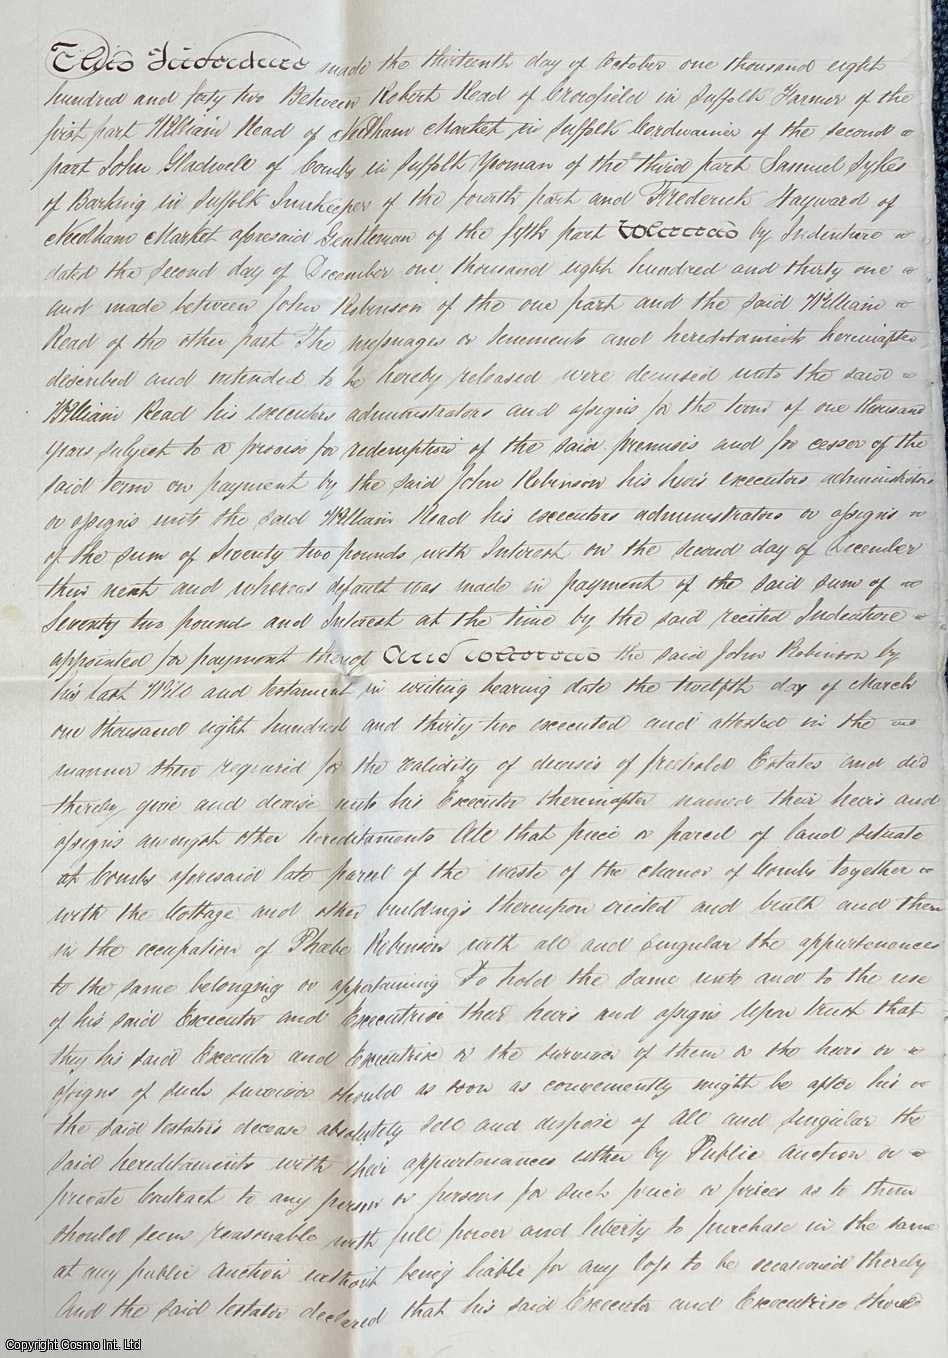 This Indenture made the thirteenth day of October one thousand eight
hundred and forty two Between Robert Read of Crowfield in Suffolk Farmer of the
first part William Read of Needham Market in Suffolk Cordwainer of the second
part John Gladwell of Combs in Suffolk Yeoman of the third part Samuel Sykes
of Barking in Suffolk Innkeeper of the fourth part and Frederick Hayward of
Needham Market aforesaid Gentleman of the fifth part Whereas by Indenture
dated the second day of December one thousand eight hundred and thirty one
and made between John Robinson of the one part and the said William
Read of the other part The messuages or tenements and hereditaments hereinafter
described and intended to be hereby released were demised unto the said
William Read his executors administrators and assigns for the term of one thousand
years subject to a proviso for redemption of the said premises and for cesser of the
said term on payment by the said John Robinson his heirs executors administrators
or assigns unto the said William Read his executors administrators or assigns
of the sum of Seventy two pounds with Interest on the second day of December
then next and whereas default was made in payment of the said sum of
Seventy two pounds and Interest at the time by the said recited Indenture
appointed for payment thereof And whereas the said John Robinson by
his last Will and testament in writing bearing date the twelfth day of March
one thousand eight hundred and thirty two executed and attested in the
manner then required for the validity of devises of freehold Estates and did
thereby give and devise unto his Executor thereinafter named their heirs and
assigns amongst other hereditaments All that piece or parcel of land situate
at Combs aforesaid late parcel of the waste of the manor of Combs together
with the Cottage and other buildings thereupon erected and built and then
in the occupation of Phabe Robinson with all and singular the appurtenances
to the same belonging or appertaining To hold the same unto and to the use
of his said Executor and Executrix their heirs and assigns Upon trust that
they his said Executor and Executrix or the survivor of them or the heirs or
assigns of such survivor should as soon as conveniently might be after his
the said testator's decease absolutely sell and dispose of all and singular the
said hereditaments with their appurtenances either by Public auction or
private Contract to any person or persons for such price or prices as to them
should seem reasonable with full power and liberty to purchase in the same
at any public auction without being liable for any loss to be occasioned thereby
And the said testator declared that his said Executor and Executrix should
Copyright Cosmo Int. Ltd